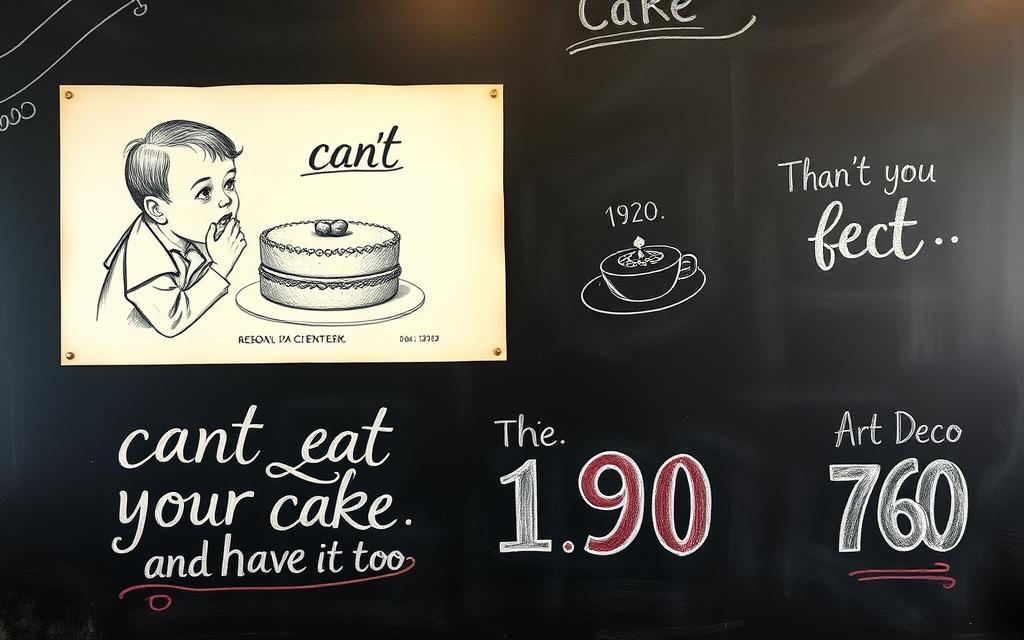 Cake
can't
1920.
Than't you
fect..
cant eat
your cake.
and have it too
The.
1.90
Art Deco
760